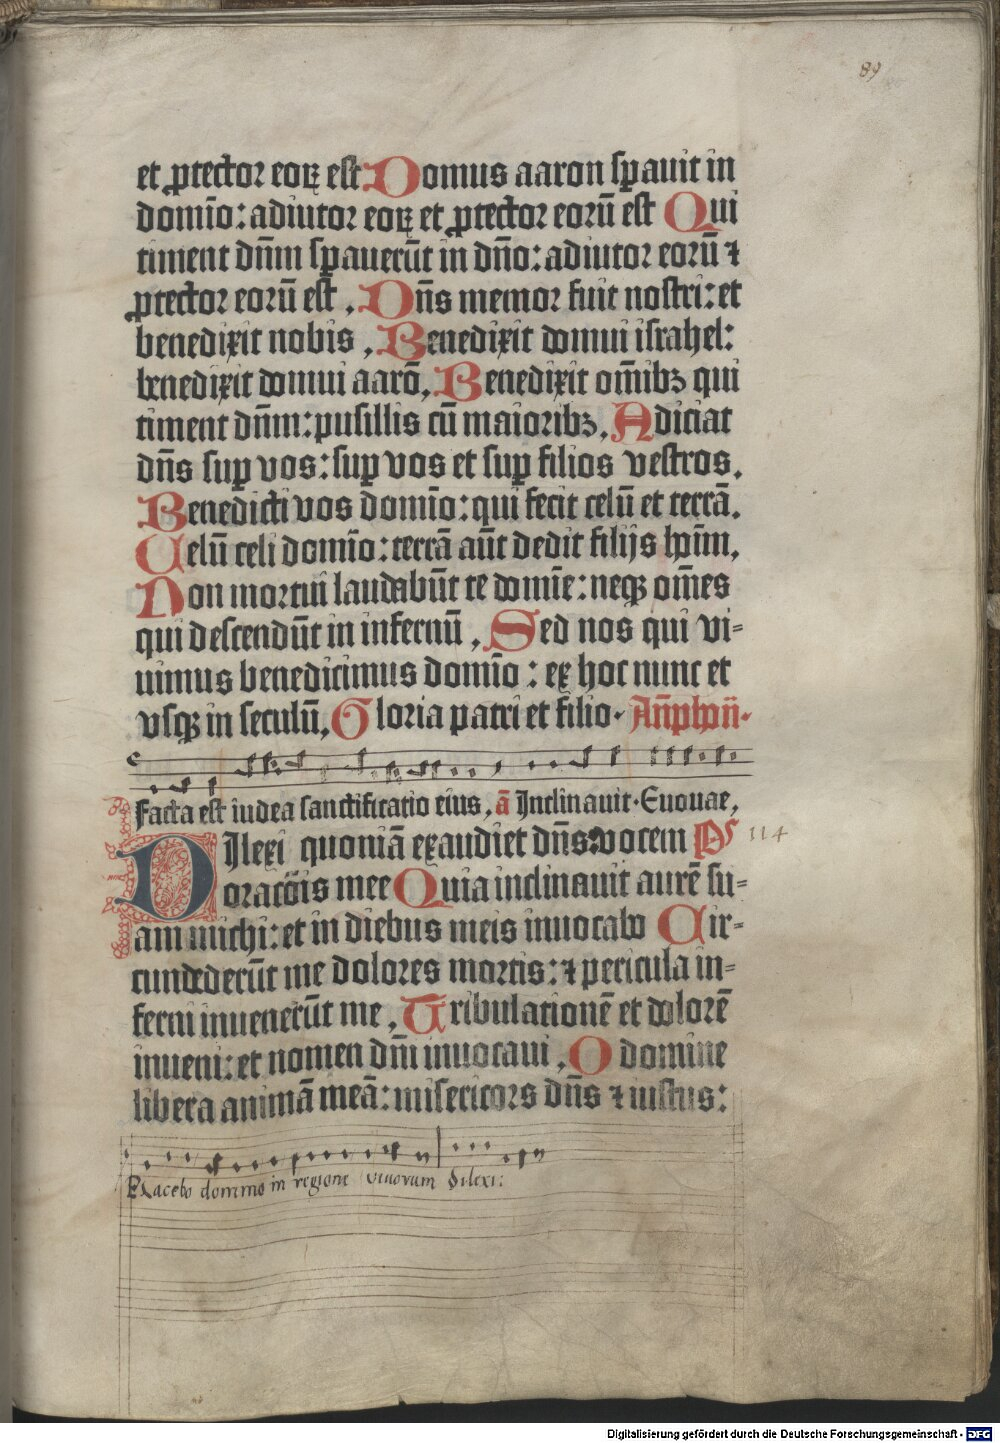 89
et ꝓtector eoꝝ est Domus aaron sꝑauit in
domĩo: adiutor eoꝝ et ꝓtector eorũ est Qui
timent dñm sꝑauerũt in dño: adiutor eorũ ⁊
ꝓtector eorũ est. Dñs memor fuit nostri: et
benedixit nobis. Benedixit domui israhel:
benedixit domui aarõ. Benedixit om̃ibꝫ qui
timent dñm: pusillis cũ maioribꝫ. Adiciat
dñs suꝑ vos: suꝑ vos et suꝑ filios vestros.
Benedicti vos domĩo: qui fecit celũ et terrã.
Celũ celi domĩo: terrã aũt dedit filijs hoĩm.
Non mortui laudabũt te domĩe: neqꝫ om̃es
qui descendũt in infernũ. Sed nos qui vi-
uimus benedicimus domĩo: ex hoc nunc et
vsqꝫ in seculũ. Gloria patri et filio. Añphoñ.
Facta est iudea sanctificatio eius. ã Inclinauit. Euouae.
Dilexi quoniã exaudiet dñs: vocem Ps 114
oracõis mee Quia inclinauit aurẽ su-
am michi: et in diebus meis inuocabo Cir-
cundederũt me dolores mortis: ⁊ pericula in-
ferni inuenerũt me. Tribulationẽ et dolorẽ
inueni: et nomen dñi inuocaui. O domine
libera animã meã: misericors dñs ⁊ iustus:
Placebo domino in regione viuorum Dilexi:
Digitalisierung gefördert durch die Deutsche Forschungsgemeinschaft - DFG